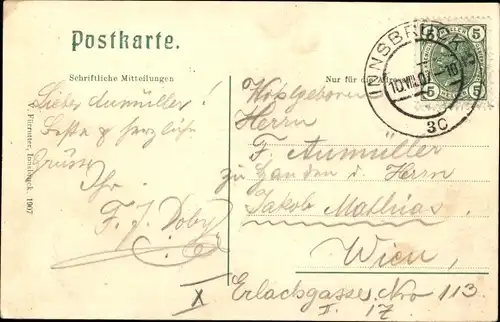 Postkarte.
Schriftliche Mitteilungen
Nur für die
INNSBRUCK
10.VIII.07
3c
5 5
V. Fürrutter, Innsbruck. 1907
Lieber Aumüller!
Beste & herzliche
Grüsse
Ihr
F. J. Doby
Wohlgeboren
Herrn
F. Aumüller
zu Handen d. Herrn
Jakob Mathias
Wien
X
Erlachgasse Nro 113
I. 17